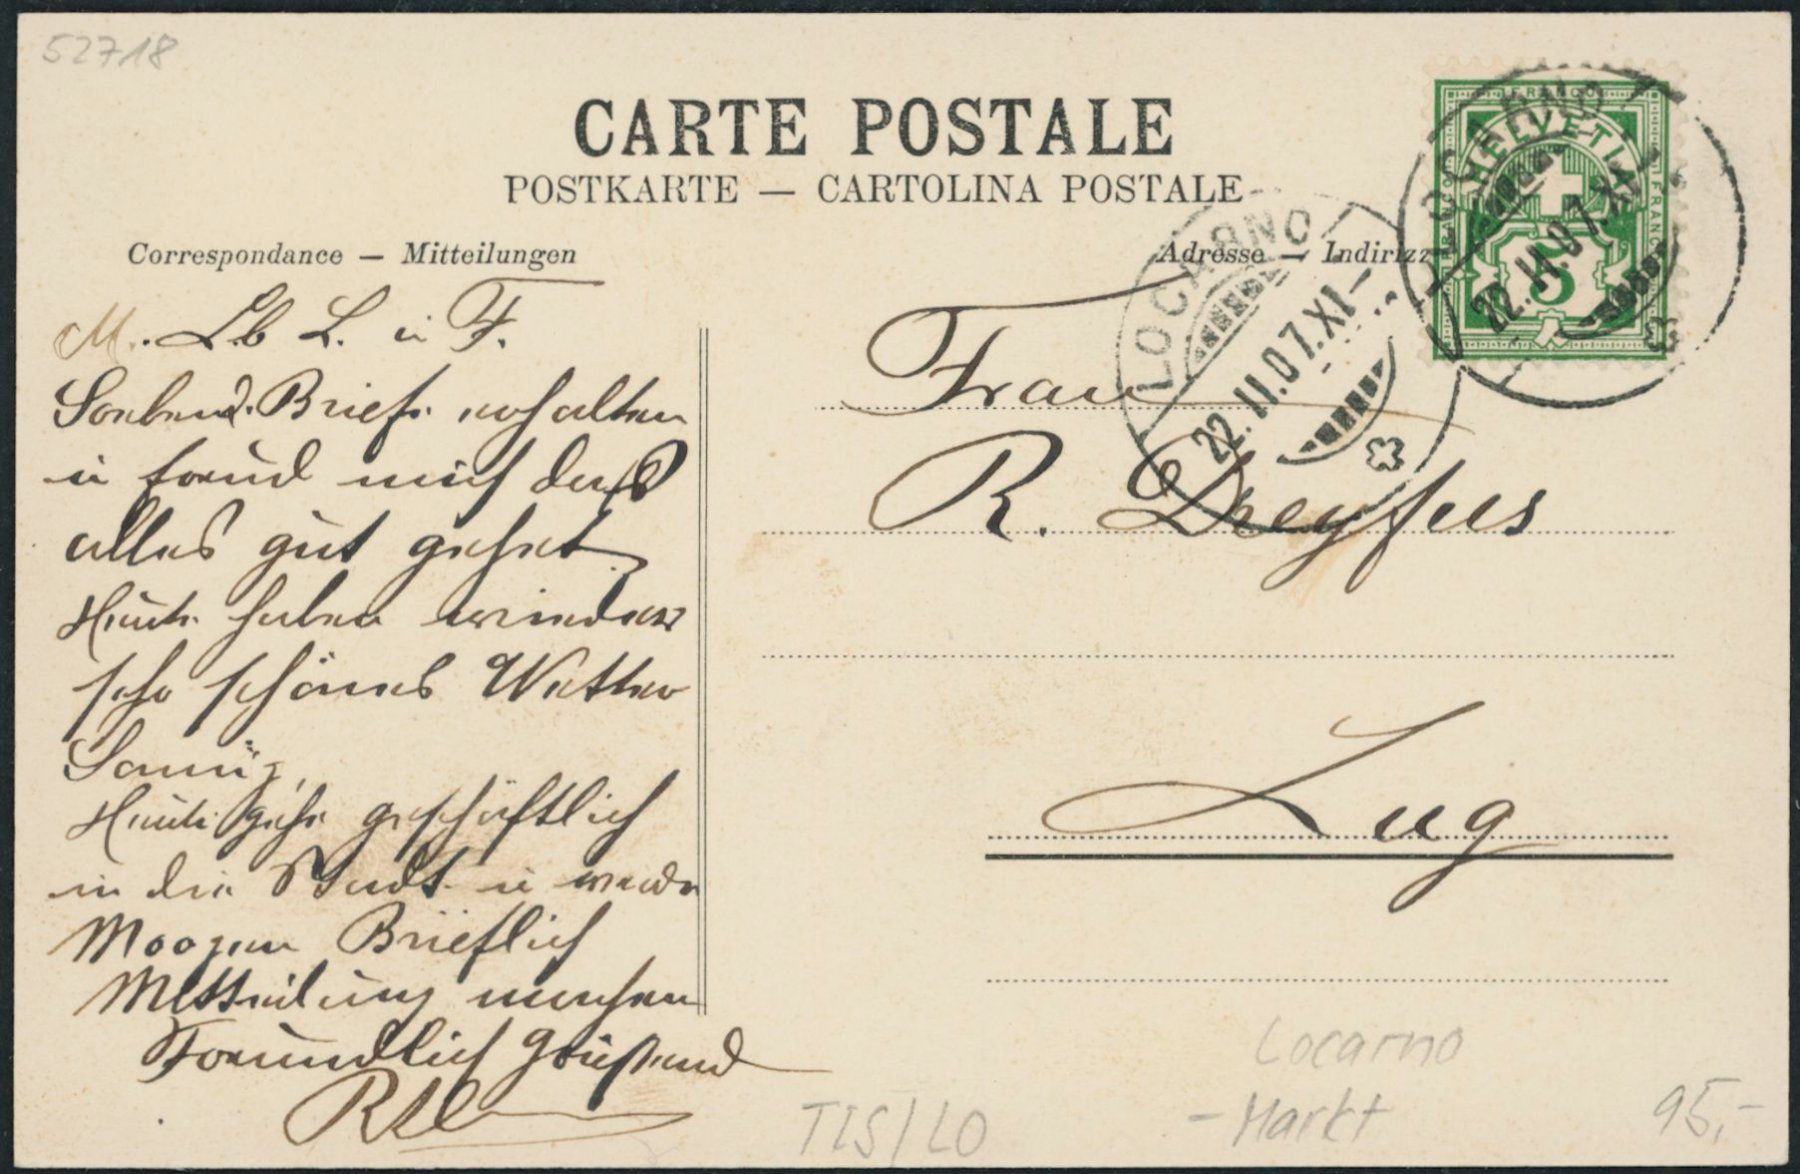 52718
CARTE POSTALE
POSTKARTE — CARTOLINA POSTALE
Correspondance — Mitteilungen
Adresse — Indirizz
HELVETIA
FRANCO
5
LOCARNO
22.II.07.XI
LOCARNO
22.II.07.XI—
M. Lb L. u F.
Soeben d. Brief erhalten
u freud mich daß
alles gut gehet.
Heute haben wieder
sehr schönes Wetter
Sonnig,
Heute gehe geschäftlich
in die Stadt u werde
Morgen Brieflich
Mittheilung machen
Freundlich grüßend
Frau
R. Dreyfus
Zug
Locarno
- Markt
TIS/LO
95,-